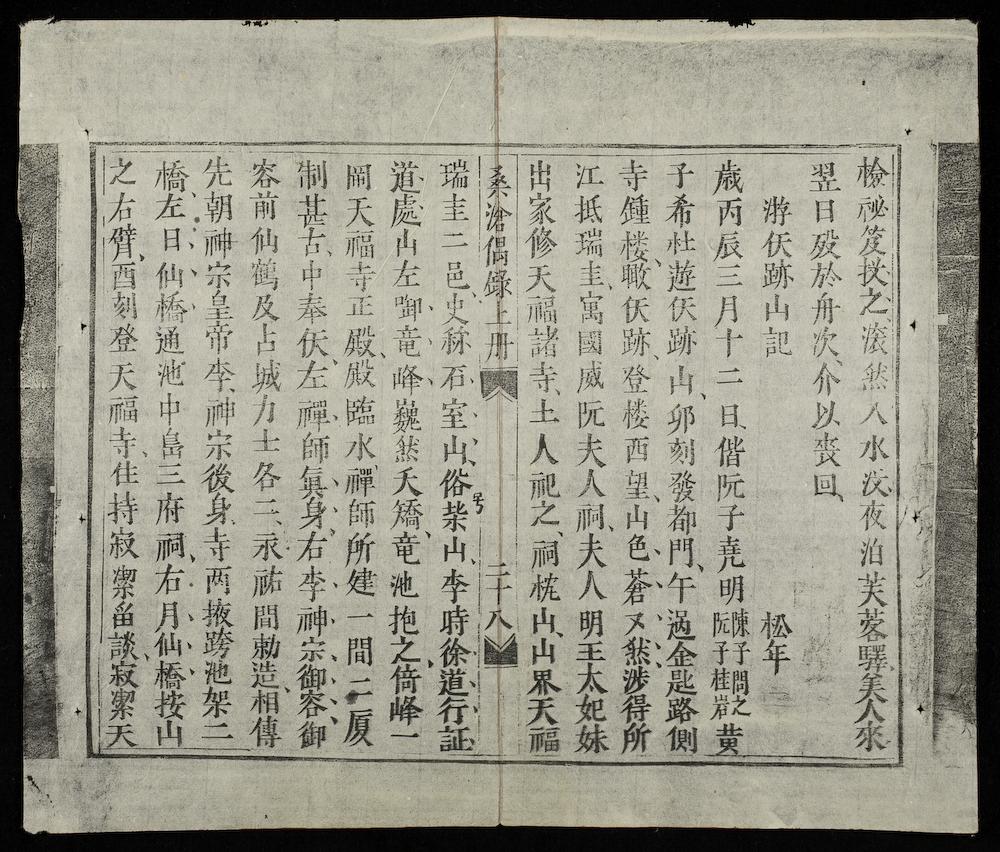 檢祕笈投之、滚然入水没、夜泊芙蓉驛、美人來
翌日殁於舟次、介以喪回、
游仸跡山記
松年
歲丙辰三月十二日、偕阮子堯明陳子問之阮子桂岩黄
子希杜遊仸跡山、卯刻發都門、午過金匙路側
寺鍾楼、瞰仸跡、登楼西望、山色蒼又然、涉得所
江抵瑞圭、寓國威阮夫人祠、夫人明王太妃妹
出家修天福諸寺、土人祀之、祠枕山、山界天福
桑滄偶錄上册 二十八
瑞圭二邑史称石室山、俗号柴山、李時徐道行証
道處、山左踟竜峰巍然夭矯、竜池抱之、倚峰一
岡天福寺正殿、殿臨水、禪師所建一間二厦
制甚古、中奉仸左禪師眞身、右李神宗御容、御
容前仙鶴及占城力士各二、永祐間勅造、相傳
先朝神宗皇帝李神宗後身、寺両掖跨池架二
橋、左日仙橋、通池中島三府祠、右月仙橋、按山
之右臂、酉刻登天福寺、住持寂潔畱談、寂潔天